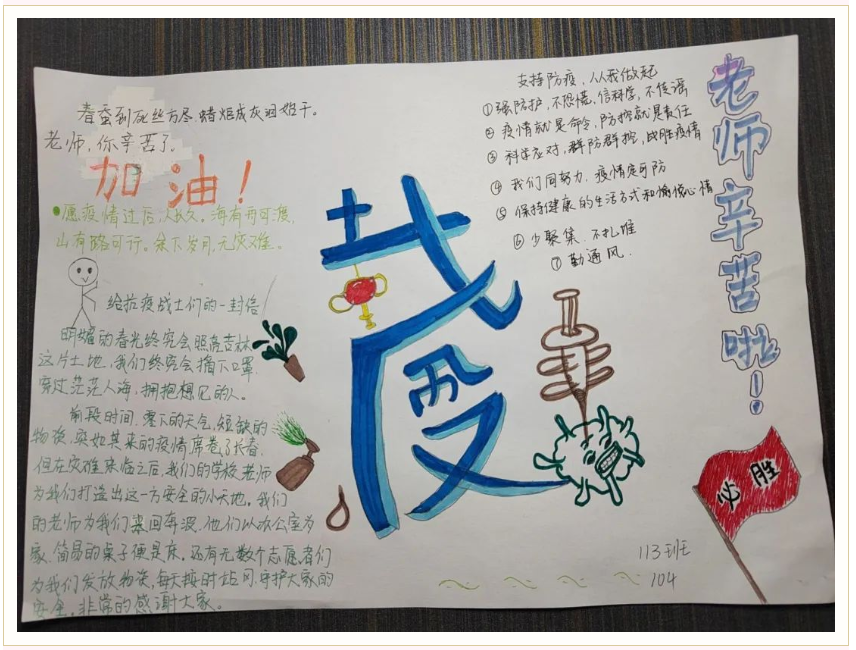 春蚕到死丝方尽,蜡炬成灰泪始干。
老师,你辛苦了。
加油!
愿疫情过后
山有路可行。余下岁月,无灾难。
给抗疫战士们的一封信!
明媚的春光终究会照亮吉林
这片土地,我们终究会摘下口罩,
穿过茫茫人海,拥抱想见的人。
前段时间,零下的天气,短缺的
物资,突如其来的疫情席卷了长春,
但在灾难来临之后,我们的学校,老师
为我们打造出这一方安全的小天地。我们
的老师为我们来回奔波,他们以办公室为
家,简易的桌子便是床。还有无数个志愿者们
为我们发放物资,每天按时站岗,守护大家的
安全。非常的感谢大家。
战疫
支持防疫,从我做起
①强防护,不恐慌,信科学,不传谣
②疫情就是命令,防控就是责任
③科学应对,群防群控,战胜疫情
④我们同努力,疫情定可防
⑤保持健康的生活方式和愉悦心情
⑥少聚集,不扎堆
⑦勤通风.
老师辛苦啦!
必胜
113班
104